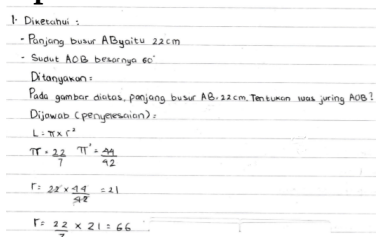 1. Diketahui :
- Panjang busur AB yaitu 22cm
- Sudut AOB besarnya 60°
Ditanyakan :
Pada gambar diatas, panjang busur AB = 22cm. Tentukan luas juring AOB ?
Dijawab (penyelesaian) :
L = π × r²
π = 22/7 π = 44/42
r = 22 × 44/42 = 21
r = 22/7 × 21 = 66